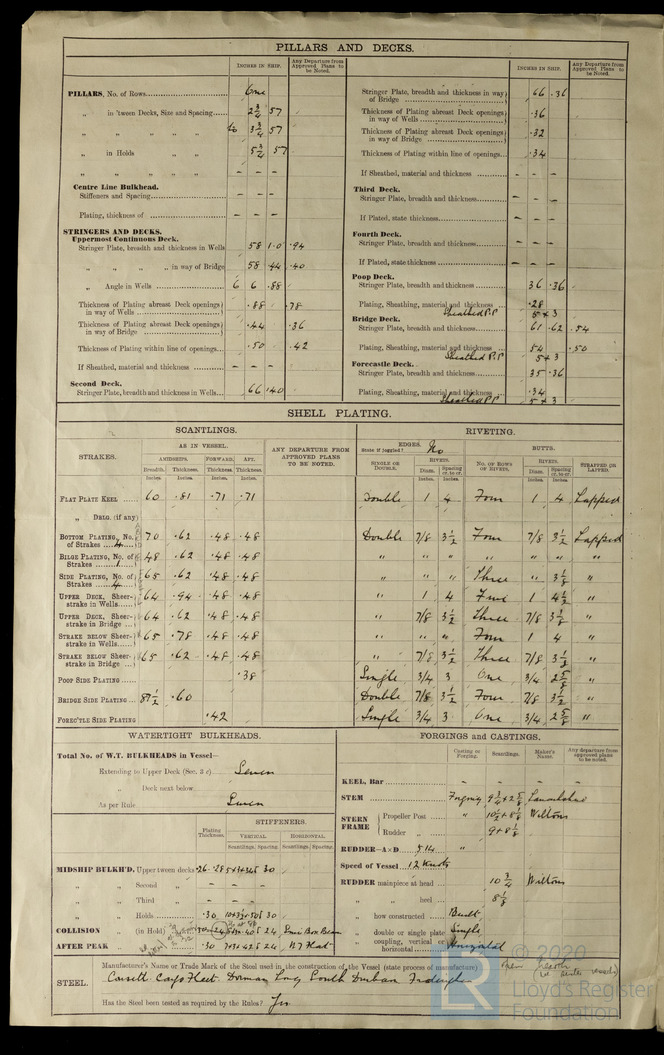 PILLARS AND DECKS.
INCHES IN SHIP. Any Departure from Approved Plans to be Noted.
PILLARS, No. of Rows One
„ in 'tween Decks, Size and Spacing 2 3/4 57
„ „ „ „ „ to 3 3/4 57
„ in Holds „ „ 5 3/4 57
„ „ „ „ – – –
Centre Line Bulkhead.
Stiffeners and Spacing – – –
Plating, thickness of – – –
STRINGERS AND DECKS.
Uppermost Continuous Deck.
Stringer Plate, breadth and thickness in Wells 58 1.0 .94
„ „ „ „ in way of Bridge 58 .44 .40
„ Angle in Wells 6 6 .88
Thickness of Plating abreast Deck openings in way of Wells .88 .78
Thickness of Plating abreast Deck openings in way of Bridge .44 .36
Thickness of Plating within line of openings .50 .42
If Sheathed, material and thickness – – –
Second Deck.
Stringer Plate, breadth and thickness in Wells 66 .40
INCHES IN SHIP. Any Departure from Approved Plans to be Noted.
Stringer Plate, breadth and thickness in way of Bridge 66 .36
Thickness of Plating abreast Deck openings in way of Wells .36
Thickness of Plating abreast Deck openings in way of Bridge .32
Thickness of Plating within line of openings .34
If Sheathed, material and thickness – – –
Third Deck.
Stringer Plate, breadth and thickness – – –
If Plated, state thickness – – –
Fourth Deck.
Stringer Plate, breadth and thickness – – –
If Plated, state thickness – – –
Poop Deck.
Stringer Plate, breadth and thickness 36 .36
Plating, Sheathing, material and thickness .28
Sheathed P.P 5 x 3
Bridge Deck.
Stringer Plate, breadth and thickness 61 .62 .54
Plating, Sheathing, material and thickness .54 .50
Sheathed P.P 5 x 3
Forecastle Deck.
Stringer Plate, breadth and thickness 35 .36
Plating, Sheathing, material and thickness .34
Sheathed P.P 5 x 3
SHELL PLATING.
SCANTLINGS. RIVETING.
STRAKES. AS IN VESSEL. ANY DEPARTURE FROM APPROVED PLANS TO BE NOTED.
AMIDSHIPS. FORWARD. AFT.
Breadth. Thickness. Thickness. Thickness.
Inches. Inches. Inches. Inches.
EDGES. State if joggled? No BUTTS.
SINGLE OR DOUBLE. RIVETS. Diam. Spacing cr. to cr. NO. OF ROWS OF RIVETS. RIVETS. Diam. Spacing cr. to cr. STRAPPED OR LAPPED.
FLAT PLATE KEEL 60 .81 .71 .71 Double 1 4 Four 1 4 Lapped
„ DBLG. (if any)
BOTTOM PLATING, No. of Strakes 4 70 .62 .48 .48 Double 7/8 3 1/2 Four 7/8 3 1/2 Lapped
BILGE PLATING, No. of Strakes 1 48 .62 .48 .48 „ „ „ „ „ „ „
SIDE PLATING, No. of Strakes 4 65 .62 .48 .48 „ „ „ Three „ 3 1/8 „
UPPER DECK, Sheer-strake in Wells 64 .94 .48 .48 „ 1 4 1 4 1/2 „
UPPER DECK, Sheer-strake in Bridge 64 .62 .48 .48 „ 7/8 3 1/2 Three 7/8 3 1/8 „
STRAKE BELOW Sheer-strake in Wells 65 .78 .48 .48 „ „ „ Four 1 4 „
STRAKE BELOW Sheer-strake in Bridge 65 .62 .48 .48 „ 7/8 3 1/2 Three 7/8 3 1/8 „
POOP SIDE PLATING .38 Single 3/4 3 One 3/4 2 5/8 „
BRIDGE SIDE PLATING 87 1/2 .60 Double 7/8 3 1/2 Four 7/8 3 1/2 „
FOREC'TLE SIDE PLATING .42 Single 3/4 3 One 3/4 2 5/8 „
WATERTIGHT BULKHEADS.
Total No. of W.T. BULKHEADS in Vessel—
Extending to Upper Deck (Sec. 3 c) Seven
„ Deck next below
As per Rule Seven
Plating Thickness. STIFFENERS.
VERTICAL. HORIZONTAL.
Scantlings. Spacing. Scantlings. Spacing.
MIDSHIP BULKH'D, Upper tween decks .26 .28 30
„ „ Second „
„ „ Third „
„ „ Holds .30 30
COLLISION „ (in Hold) 24 Semi Box Beam
AFTER PEAK „ „ .30 24
FORGINGS and CASTINGS.
Casting or Forging. Scantlings. Maker's Name. Any departure from approved plans to be noted.
KEEL, Bar – – – –
STEM Forging 9 3/4 x 2 5/8 Lanarkshire
STERN FRAME Propeller Post „ 10 1/2 x 8 1/8 Wiltons
Rudder „ 9 x 8 1/8
RUDDER—A×D 514 „
Speed of Vessel 12 Knots
RUDDER mainpiece at head 10 3/4 Wiltons
„ „ heel 8 1/8
„ how constructed Built
„ double or single plate Single
„ coupling, vertical or horizontal Horizontal
STEEL. Manufacturer's Name or Trade Mark of the Steel used in the construction of the Vessel (state process of manufacture) Open hearth
Consett Cargo Fleet Dorman Long South Durham Frodingham
Has the Steel been tested as required by the Rules? Yes
© 2020
LR Lloyd's Register
Foundation